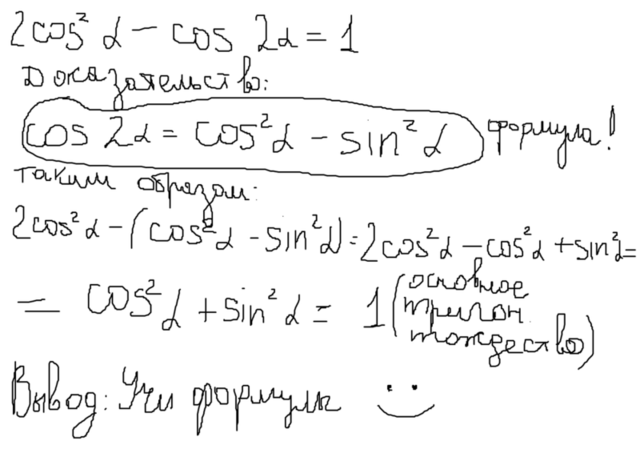 2cos² α − cos 2α = 1
Доказательство:
cos 2α = cos²α − sin²α формула!
таким образом:
2cos²α − (cos²α − sin²α) = 2cos²α − cos²α + sin²=
= cos²α + sin²α = 1 (основное
тригон.
тождество)
Вывод: Учи формулы